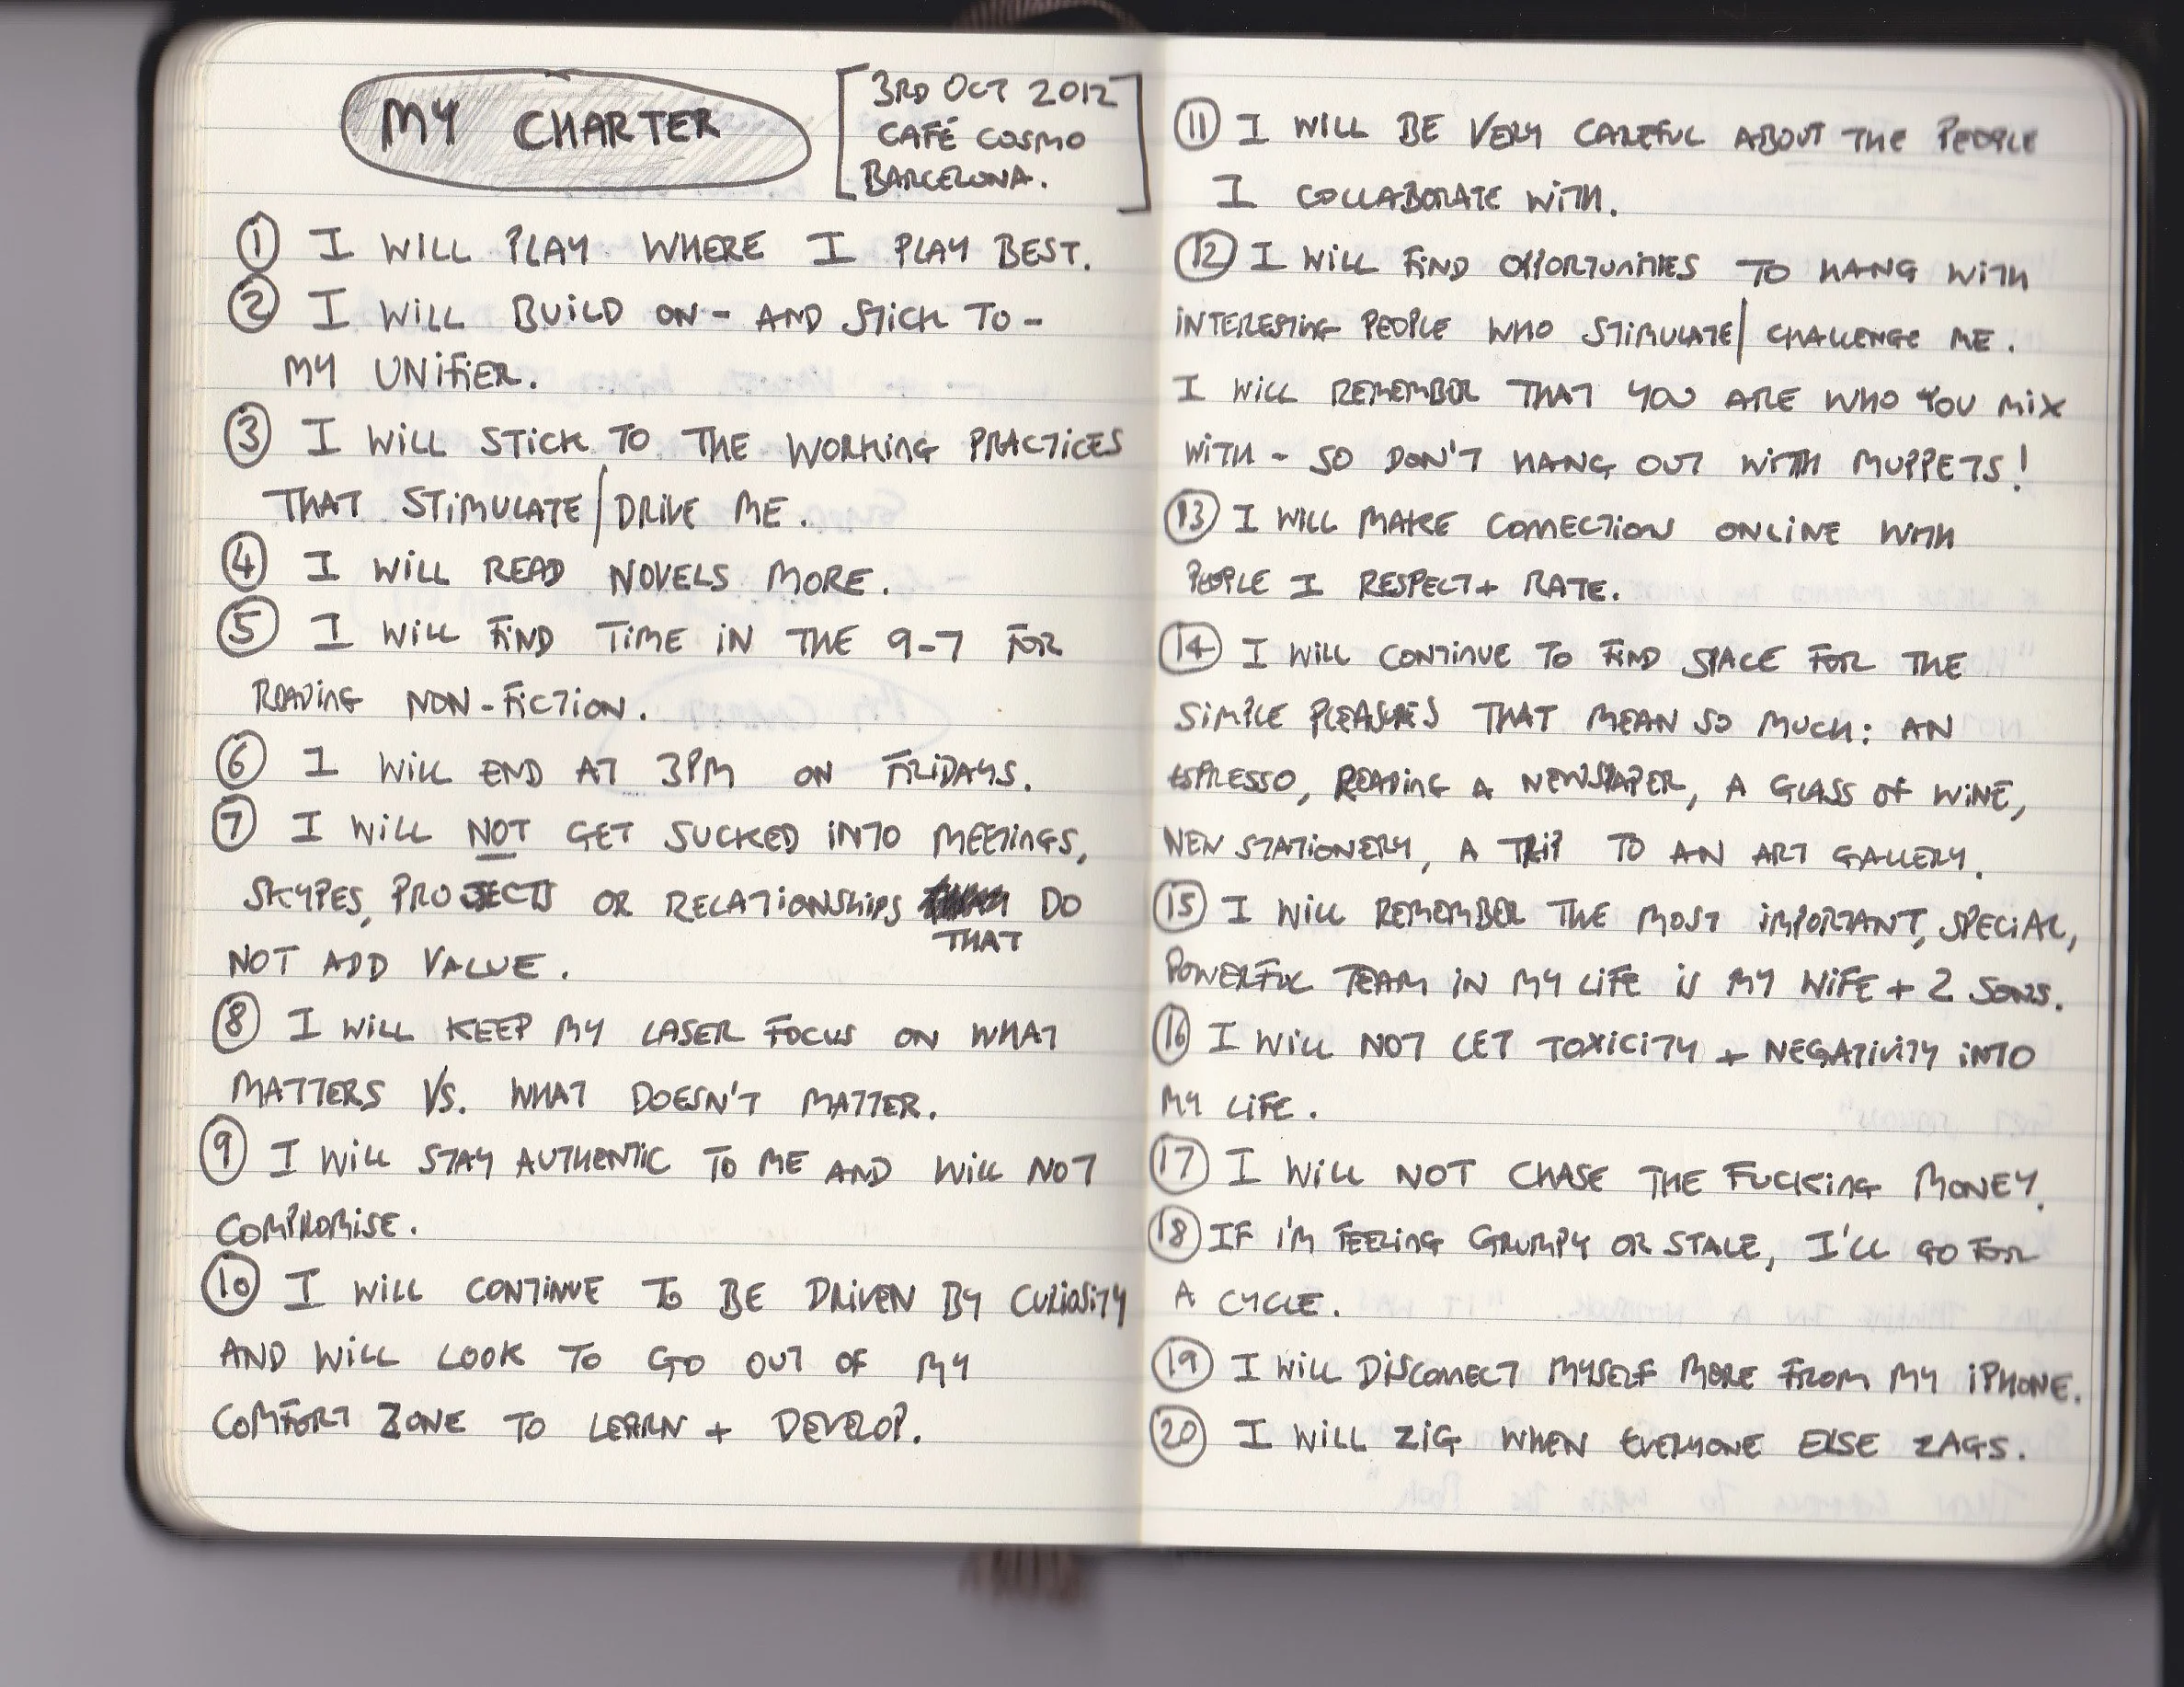 MY CHARTER
[3RD OCT 2012
CAFÉ COSMO
BARCELONA.]
① I WILL PLAY WHERE I PLAY BEST.
② I WILL BUILD ON - AND STICK TO -
MY UNIFIER.
③ I WILL STICK TO THE WORKING PRACTICES
THAT STIMULATE/DRIVE ME.
④ I WILL READ NOVELS MORE.
⑤ I WILL FIND TIME IN THE 9-7 FOR
READING NON-FICTION.
⑥ I WILL END AT 3PM ON FRIDAYS.
⑦ I WILL NOT GET SUCKED INTO MEETINGS,
SKYPES, PROJECTS OR RELATIONSHIPS THAT DO
NOT ADD VALUE.
⑧ I WILL KEEP MY LASER FOCUS ON WHAT
MATTERS VS. WHAT DOESN'T MATTER.
⑨ I WILL STAY AUTHENTIC TO ME AND WILL NOT
COMPROMISE.
⑩ I WILL CONTINUE TO BE DRIVEN BY CURIOSITY
AND WILL LOOK TO GO OUT OF MY
COMFORT ZONE TO LEARN + DEVELOP.
⑪ I WILL BE VERY CAREFUL ABOUT THE PEOPLE
I COLLABORATE WITH.
⑫ I WILL FIND OPPORTUNITIES TO HANG WITH
INTERESTING PEOPLE WHO STIMULATE/CHALLENGE ME.
I WILL REMEMBER THAT YOU ARE WHO YOU MIX
WITH - SO DON'T HANG OUT WITH MUPPETS!
⑬ I WILL MAKE CONNECTION ONLINE WITH
PEOPLE I RESPECT + RATE.
⑭ I WILL CONTINUE TO FIND SPACE FOR THE
SIMPLE PLEASURES THAT MEAN SO MUCH: AN
ESPRESSO, READING A NEWSPAPER, A GLASS OF WINE,
NEW STATIONERY, A TRIP TO AN ART GALLERY.
⑮ I WILL REMEMBER THE MOST IMPORTANT, SPECIAL,
POWERFUL TEAM IN MY LIFE IS MY WIFE + 2 SONS.
⑯ I WILL NOT LET TOXICITY + NEGATIVITY INTO
MY LIFE.
⑰ I WILL NOT CHASE THE FUCKING MONEY.
⑱ IF I'M FEELING GRUMPY OR STALE, I'LL GO FOR
A CYCLE.
⑲ I WILL DISCONNECT MYSELF MORE FROM MY iPHONE.
⑳ I WILL ZIG WHEN EVERYONE ELSE ZAGS.